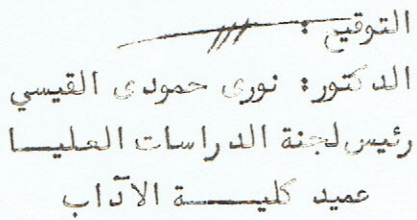 التوقيع :
الدكتور: نورى حمودى القيسي
رئيس لجنة الدراسات العليـــا
عميد كليـــــة الآداب